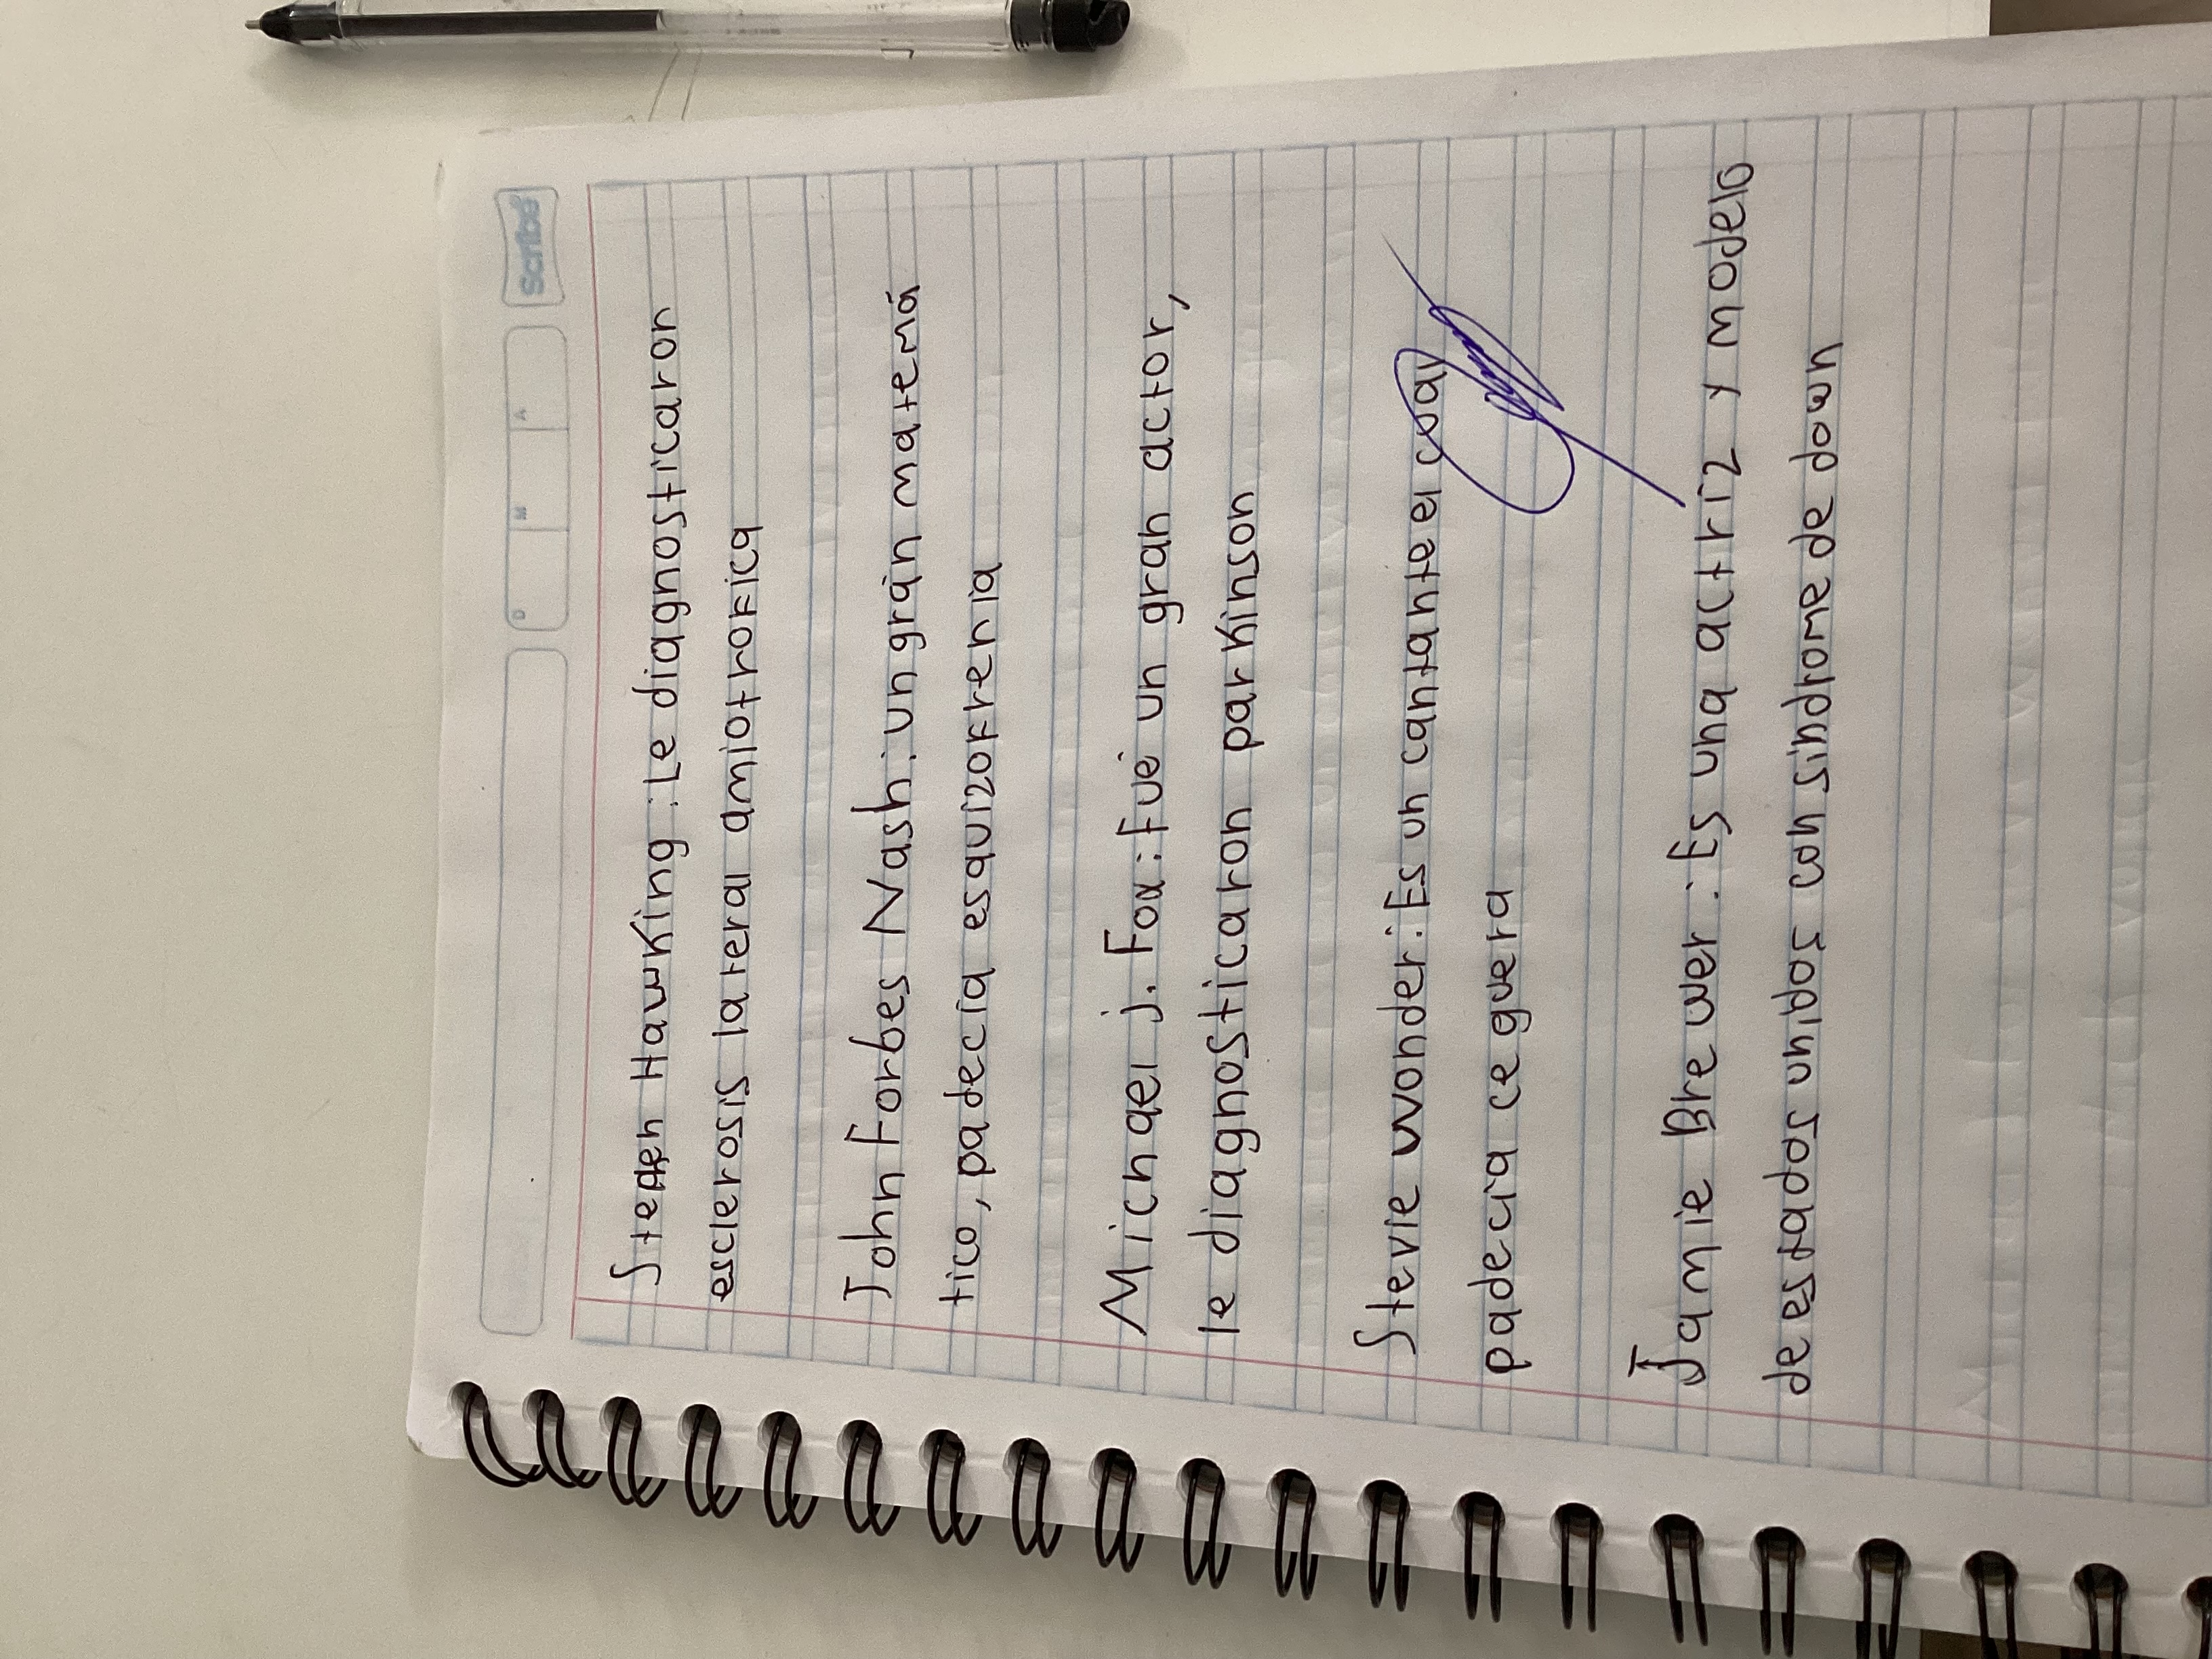 Scribe
D M A
Stephen Hawking: Le diagnosticaron
esclerosis lateral amiotrofica
John Forbes Nash: un gran matemá
tico, padecía esquizofrenia
Michael j. Fox: Fué un gran actor,
le diagnosticaron parkinson
Stevie wonder: Es un cantante el cual
padecia ceguera
Jamie Brewer: Es una actriz y modelo
de estados unidos con sindrome de down